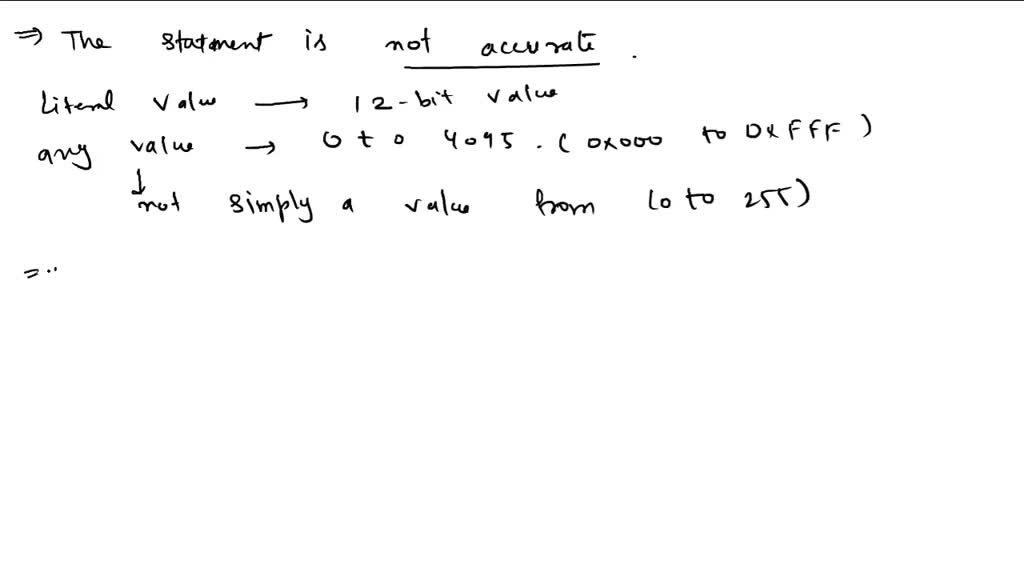 ⇒ The statement is not accurate.
Literal value → 12-bit value
any value → 0 to 4095. (0x000 to 0xFFF)
↓
not simply a value from (0 to 255)
=..